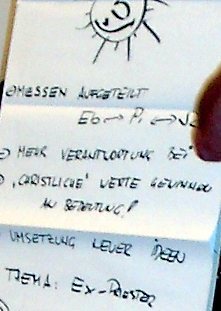 MESSEN AUFGETEILT
Eb ↔ Pi ↔
MEHR VERANTWORTUNG BEI
„CHRISTLICHE" WERTE GEWINNEN
AN BEDEUTUNG!
UMSETZUNG NEUER IDEEN
THEMA: EX-PRIESTER